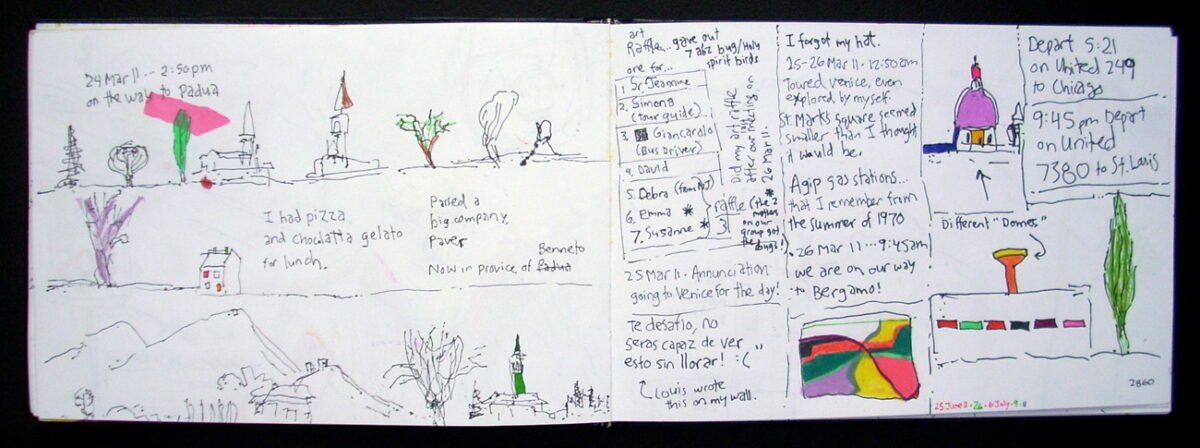 24 Mar 11... 2:50pm
on the way to Padua
I had pizza
and choclatta gelato
for lunch.
Passed a
big company,
Paver
Benneto
Now in provice of Padua
art
Raffle... gave out
7 a6z bug/Holy
one for... spirit birds
1 Sr. Jeanne
2. Simona
(tour guide)
3. Giancarolo
(Bus Driver)
4. David
5. Debra (from MJ)
6. Emma *
7. Susanne *
raffle (the 2 *
3
mothers
on our
group got
the bugs!)
Did my art raffle
after our meeting on
26 Mar 11.
25 Mar 11. Annunciation
going to Venice for the day!
Te desafio, no
seras capaz de ver
esto sin llorar! :( "
Louis wrote
this on my wall.
I forgot my hat.
25-26 Mar 11 · 12:50am
Toured Venice, even
explored by myself.
St. Marks square seemed
smaller than I thought
it would be.
Agip gas stations...
that I remember from
the summer of 1970
26 Mar 11...9:45am
we are on our way
to Bergamo!
Different "Domes"
Depart 5:21
on United 249
to Chicago
9:45pm Depart
on United
7380 to St. Louis
2860